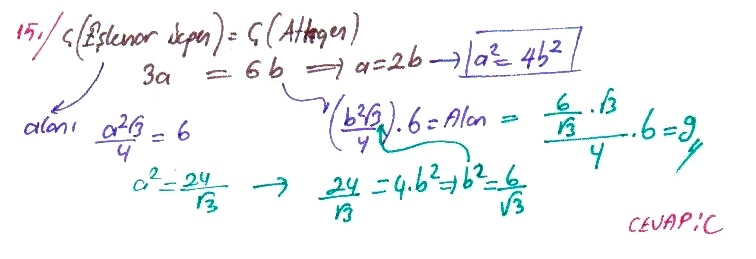 15./ Ç(Eşkenar üçgen) = Ç(Altıgen)
3a = 6b ⟹ a=2b → a²=4b²
alanı a²√3/4 = 6 (b²√3/4)·6 = Alan = (6/√3 · √3)/4 · 6 = 9
a² = 24/√3 → 24/√3 = 4·b² ⟹ b² = 6/√3
CEVAP: C